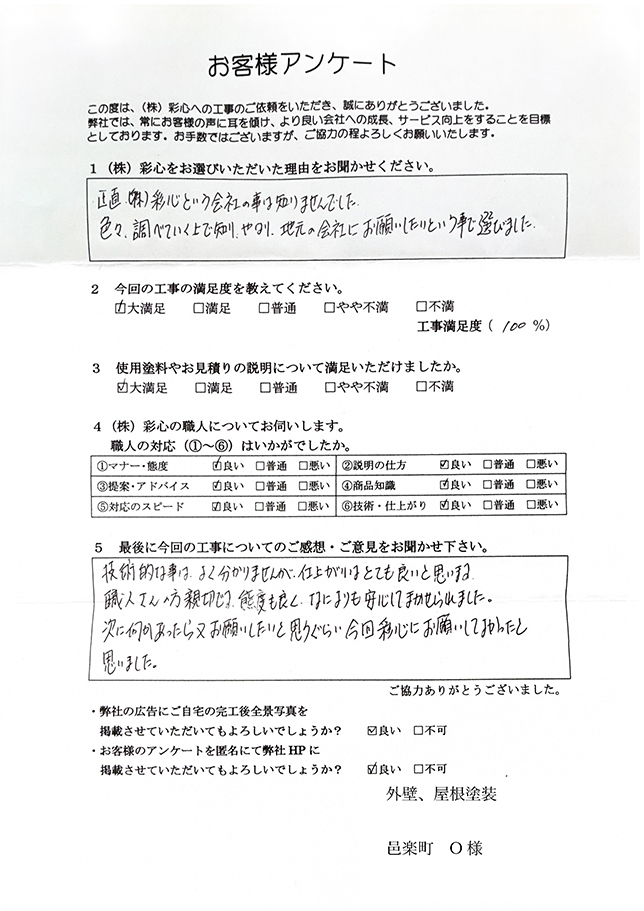 お客様アンケート
この度は、（株）彩心への工事のご依頼をいただき、誠にありがとうございました。
弊社では、常にお客様の声に耳を傾け、より良い会社への成長、サービス向上をすることを目標
としております。お手数ではございますが、ご協力の程よろしくお願いいたします。
1（株）彩心をお選びいただいた理由をお聞かせください。
正直、(株)彩心という会社の事は知りませんでした。
色々、調べていく上で知り、やはり、地元の会社にお願いしたいという事で選びました。
2 今回の工事の満足度を教えてください。
☑大満足 □満足 □普通 □やや不満 □不満
工事満足度（ 100 ％）
3 使用塗料やお見積りの説明について満足いただけましたか。
☑大満足 □満足 □普通 □やや不満 □不満
4（株）彩心の職人についてお伺いします。
職人の対応（①～⑥）はいかがでしたか。
①マナー・態度 ☑良い □普通 □悪い ②説明の仕方 ☑良い □普通 □悪い
③提案・アドバイス ☑良い □普通 □悪い ④商品知識 ☑良い □普通 □悪い
⑤対応のスピード ☑良い □普通 □悪い ⑥技術・仕上がり ☑良い □普通 □悪い
5 最後に今回の工事についてのご感想・ご意見をお聞かせ下さい。
技術的な事は、よく分かりませんが、仕上がりはとても良いと思います。
職人さんの方親切で、態度も良く、なによりも安心してまかせられました。
次に何かあったら又お願いしたいと思うぐらい今回彩心にお願いしてよかったと
思いました。
ご協力ありがとうございました。
・弊社の広告にご自宅の完工後全景写真を
掲載させていただいてもよろしいでしょうか？ ☑良い □不可
・お客様のアンケートを匿名にて弊社HPに
掲載させていただいてもよろしいでしょうか？ ☑良い □不可
外壁、屋根塗装
邑楽町 O様